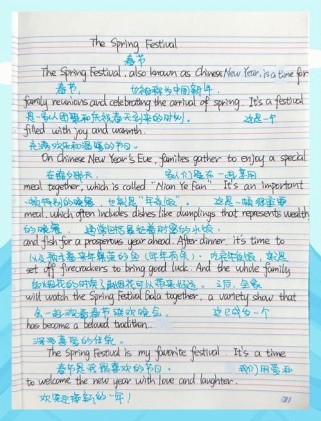 The Spring Festival
春节
The Spring Festival, also known as Chinese New Year, is a time for
春节, 也被称为中国新年,
family reunions and celebrating the arrival of spring. It's a festival
是一家人团聚和庆祝春天到来的时刻。 这是一个
filled with joy and warmth.
充满欢乐和温暖的节日。
On Chinese New Year's Eve, families gather to enjoy a special
在除夕那天, 家人们聚在一起享用
meal together, which is called "Nian Ye Fan". It's an important
一顿特别的晚餐, 也就是"年夜饭"。 这是一顿很重要
meal, which often includes dishes like dumplings that represents wealth
的晚餐, 通常包括象征着财富的水饺
and fish for a prosperous year ahead. After dinner, it's time to
以及预示着来年繁荣的鱼(年年有余)。吃完年夜饭, 就是
set off firecrackers to bring good luck. And the whole family
放烟花的时候 好运。 之后, 全家
will watch the Spring Festival Gala together, a variety show that
会一起观看春节联欢晚会, 这已成为一个
has become a beloved tradition.
深受喜爱的传统。
The Spring Festival is my favorite festival. It's a time
春节是我最喜欢的节日。 我们用爱和
to welcome the new year with love and laughter.
欢笑迎接新的一年!